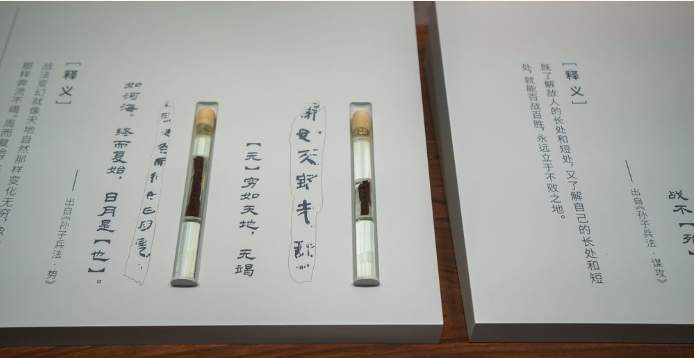 战不【殆】
—— 出自《孙子兵法 · 谋攻》
【释义】
既了解敌人的长处和短处，又了解自己的长处和短
处，就能百战百胜，永远立于不败之地。
【无】穷如天地，无竭
如河海。终而复始，日月是【也】。
—— 出自《孙子兵法 · 势》
【释义】
战法变幻就像天地自然那样变化无穷，
那样奔流不竭，周而复始